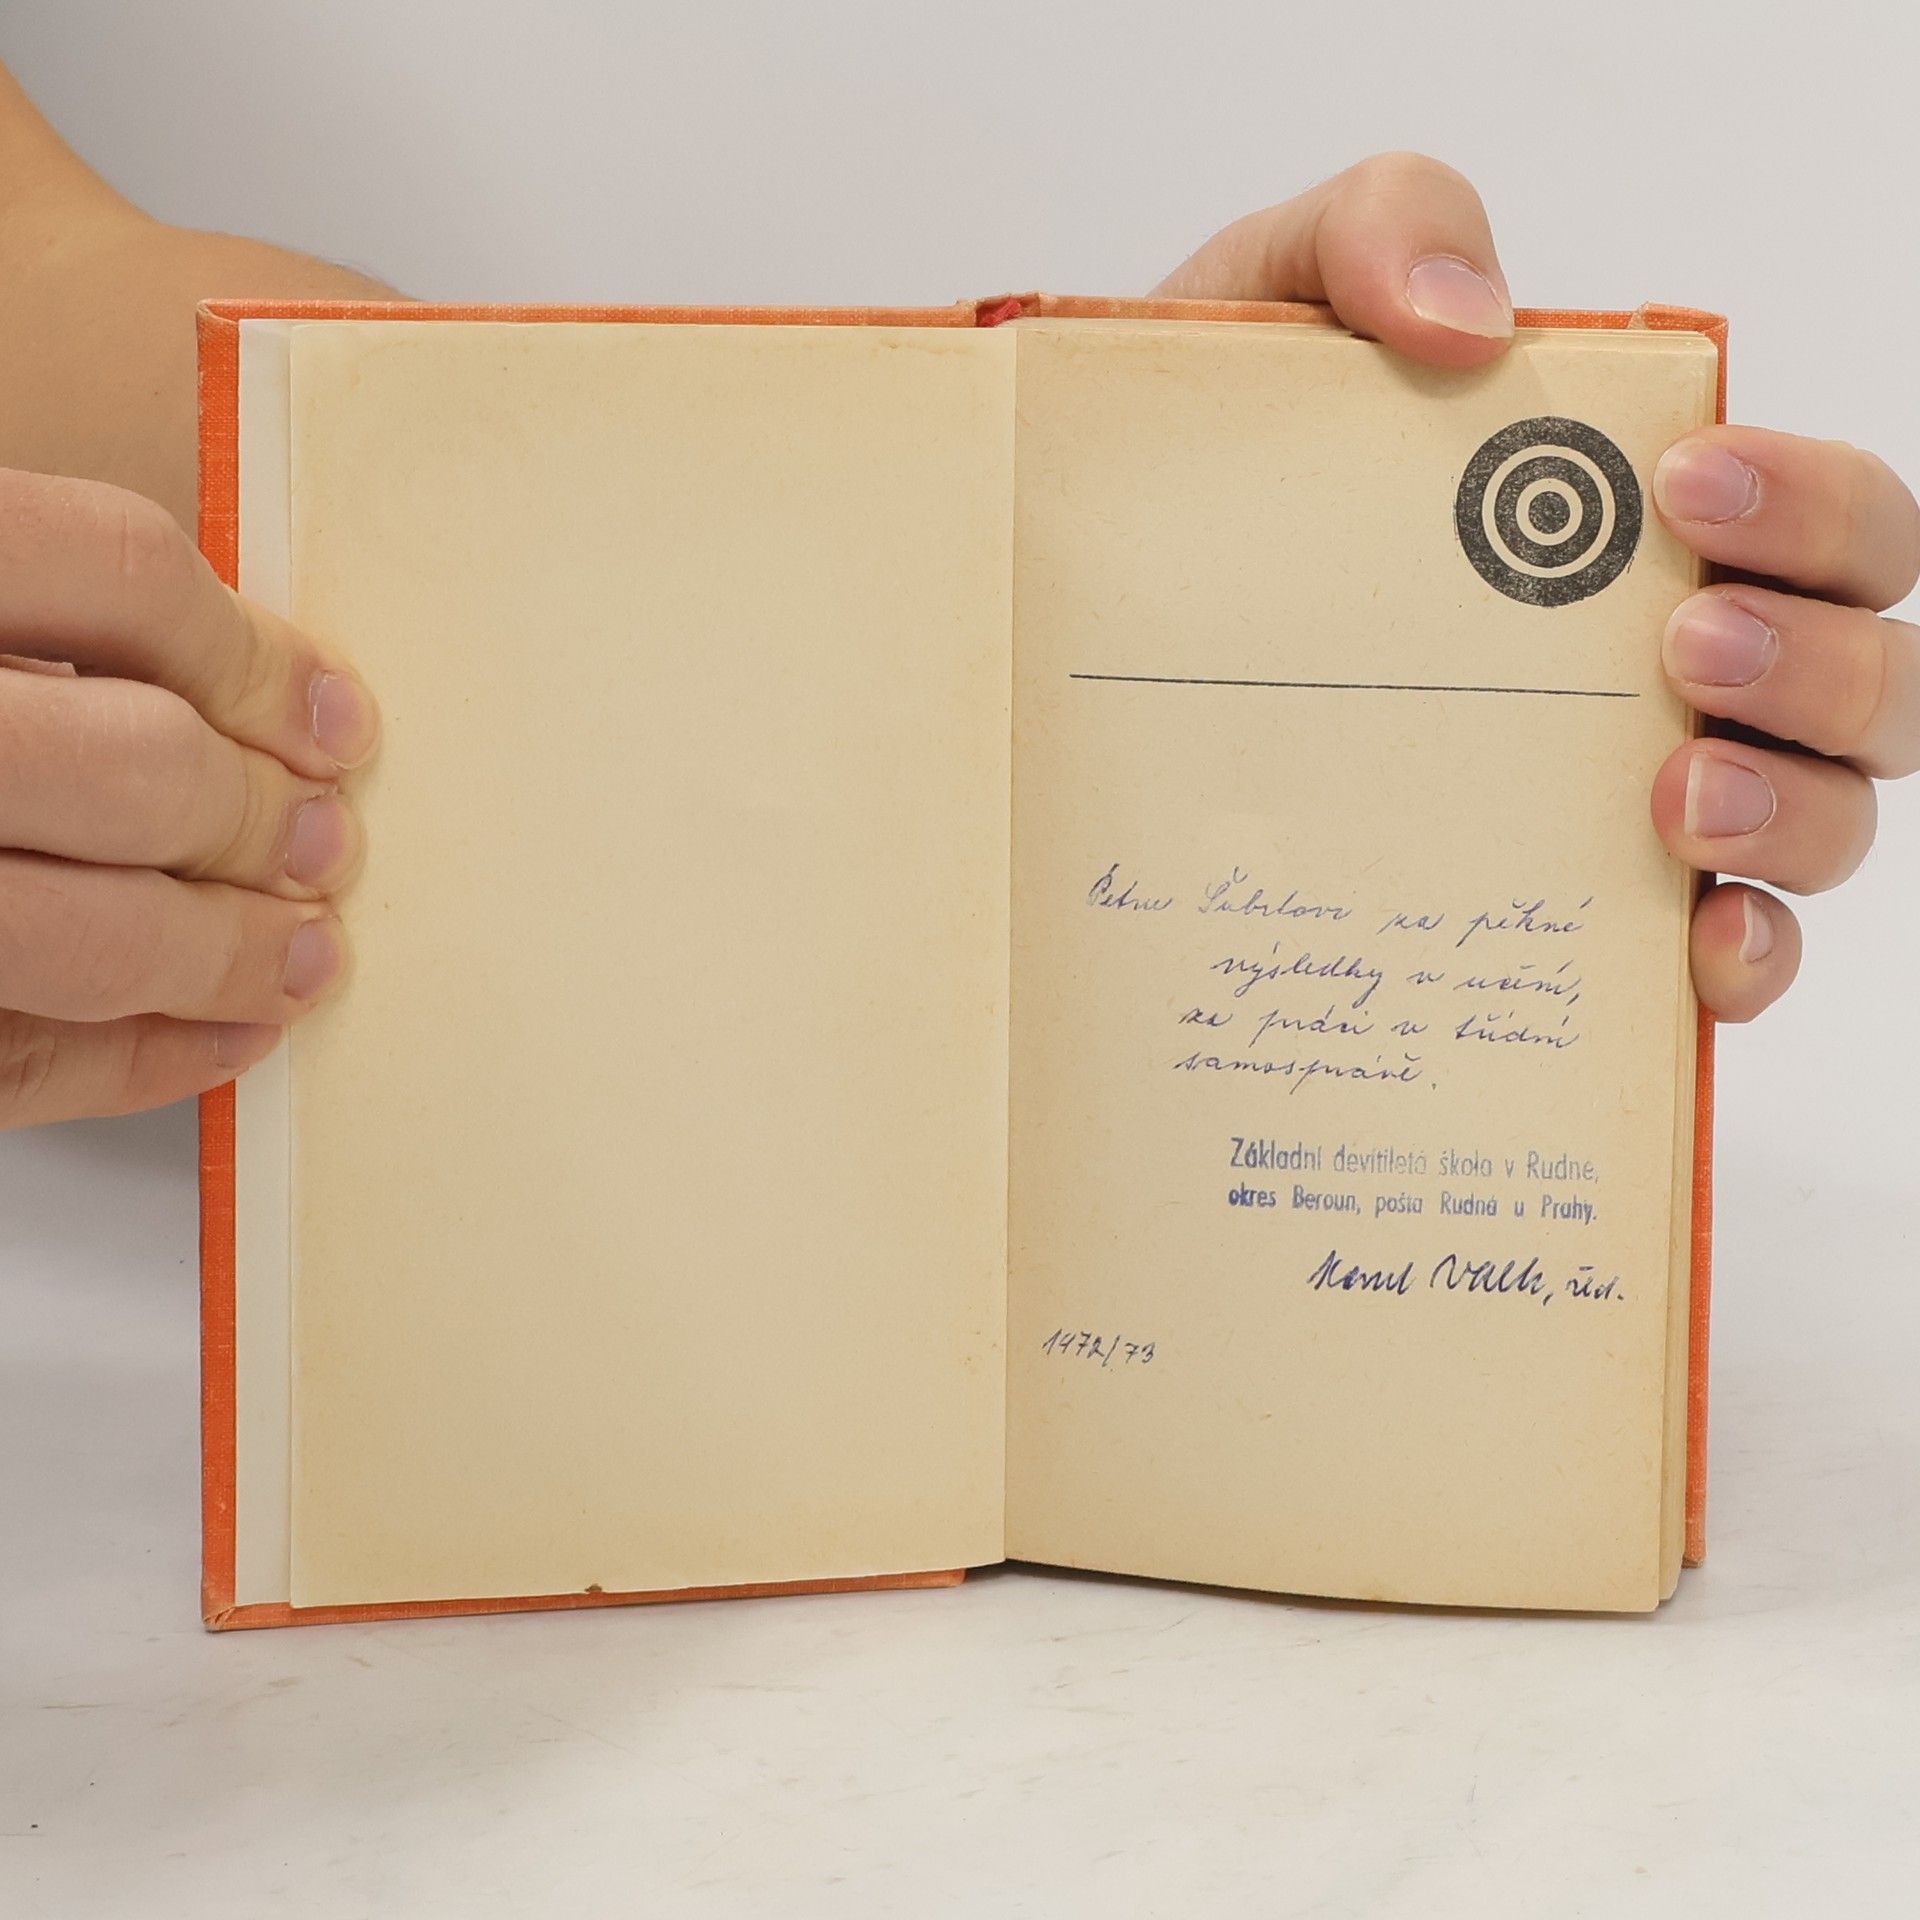 Petru Šubrtovi za pěkné
výsledky v učení,
za práci v třídní
samosprávě.
Základní devítiletá škola v Rudné,
okres Beroun, pošta Rudná u Prahy.
řed.
1972/73